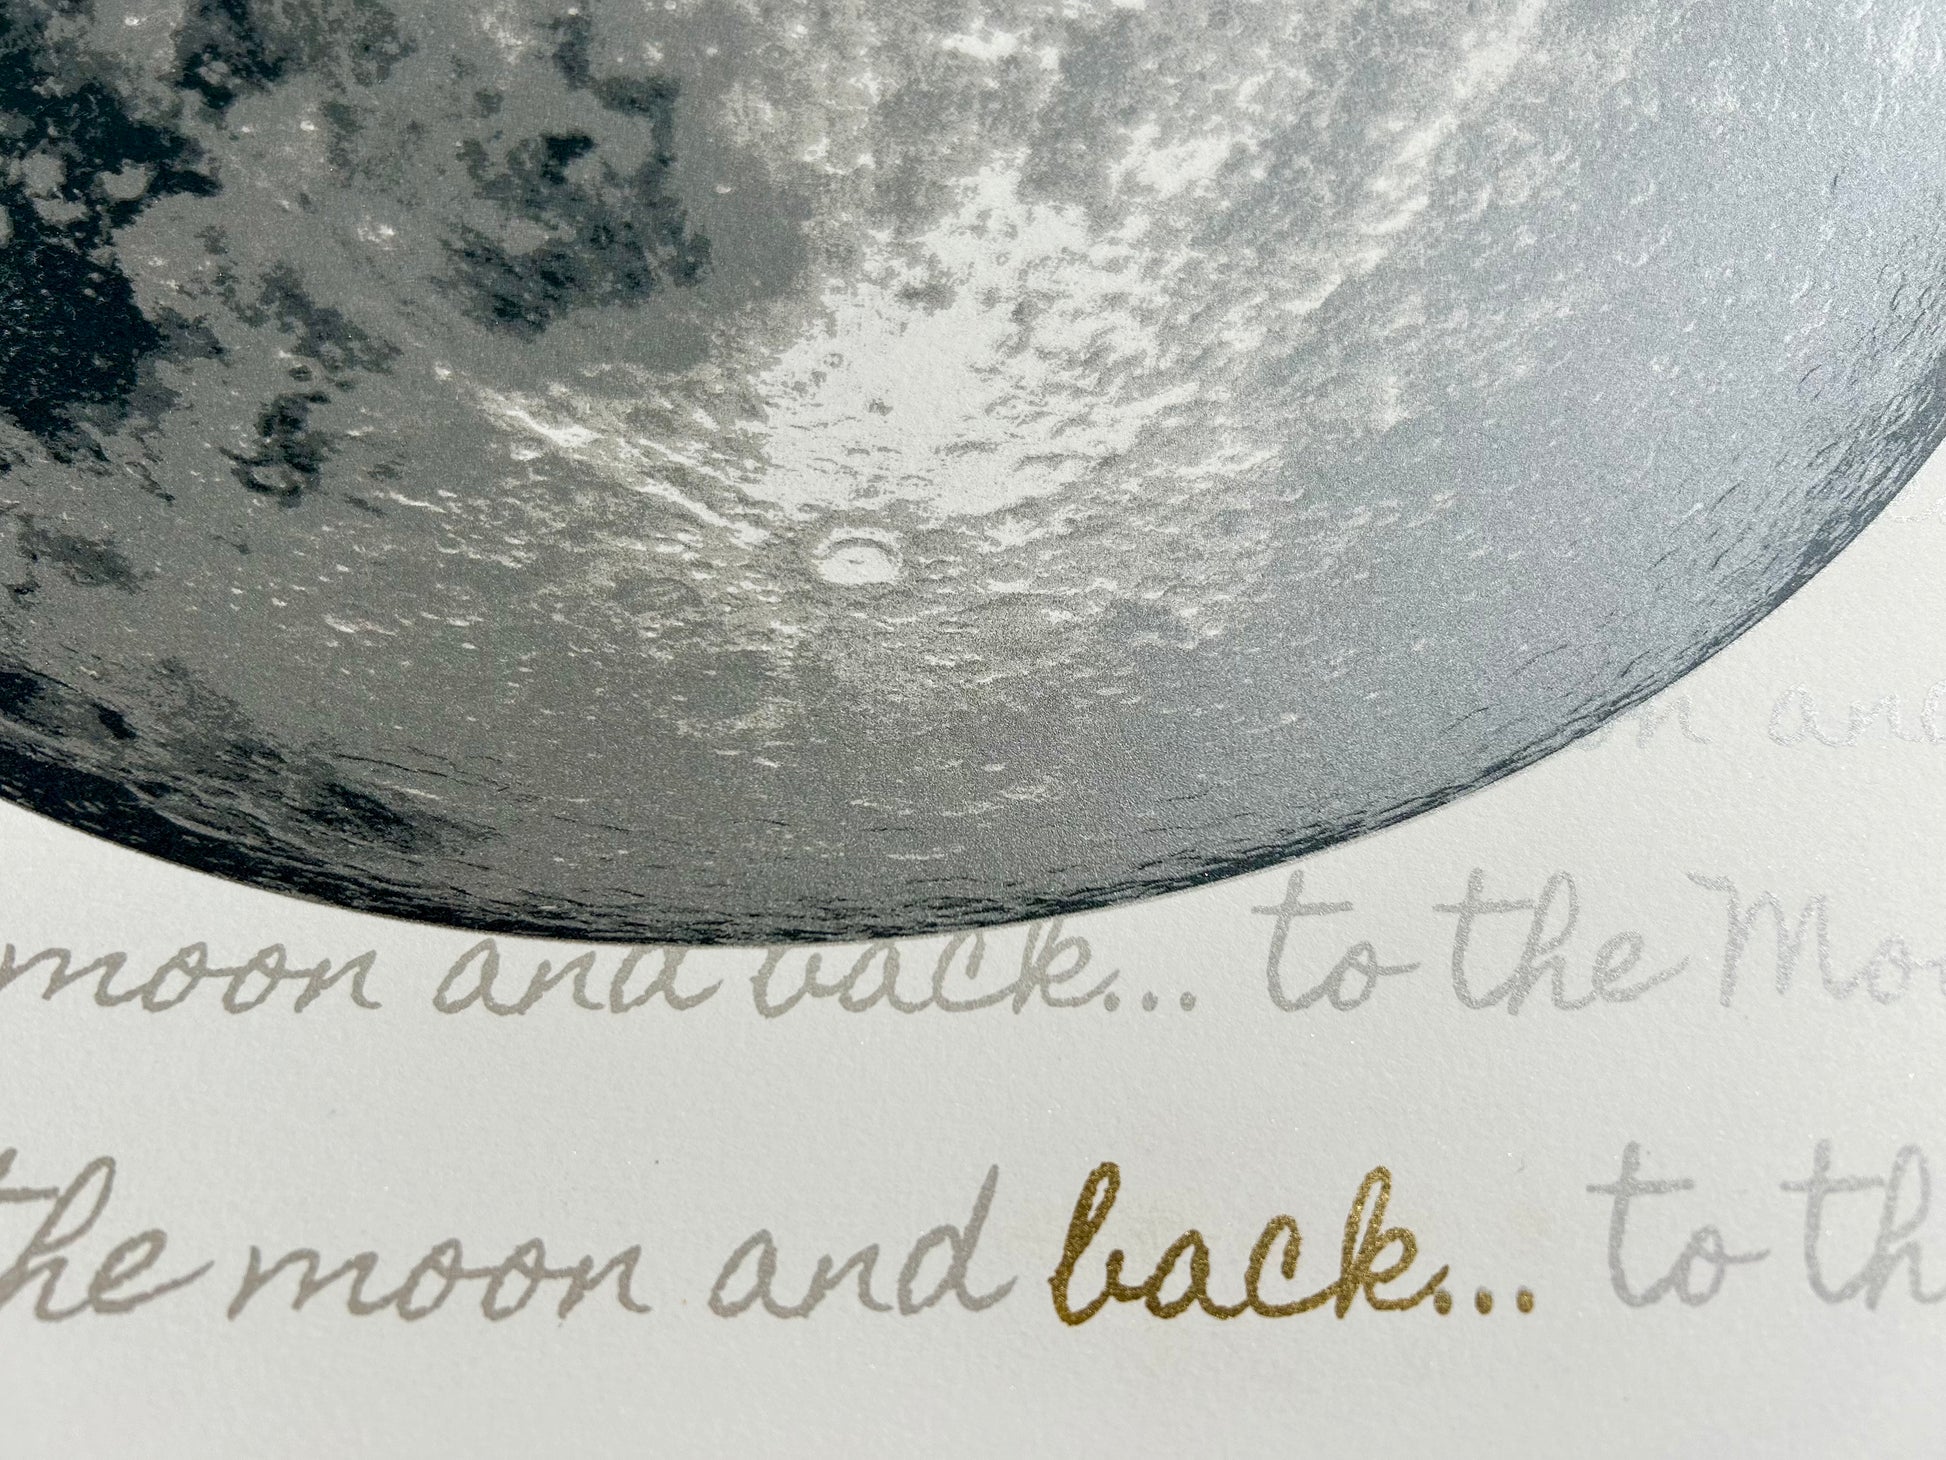 and
moon and back... to the Moo
the moon and back... to th